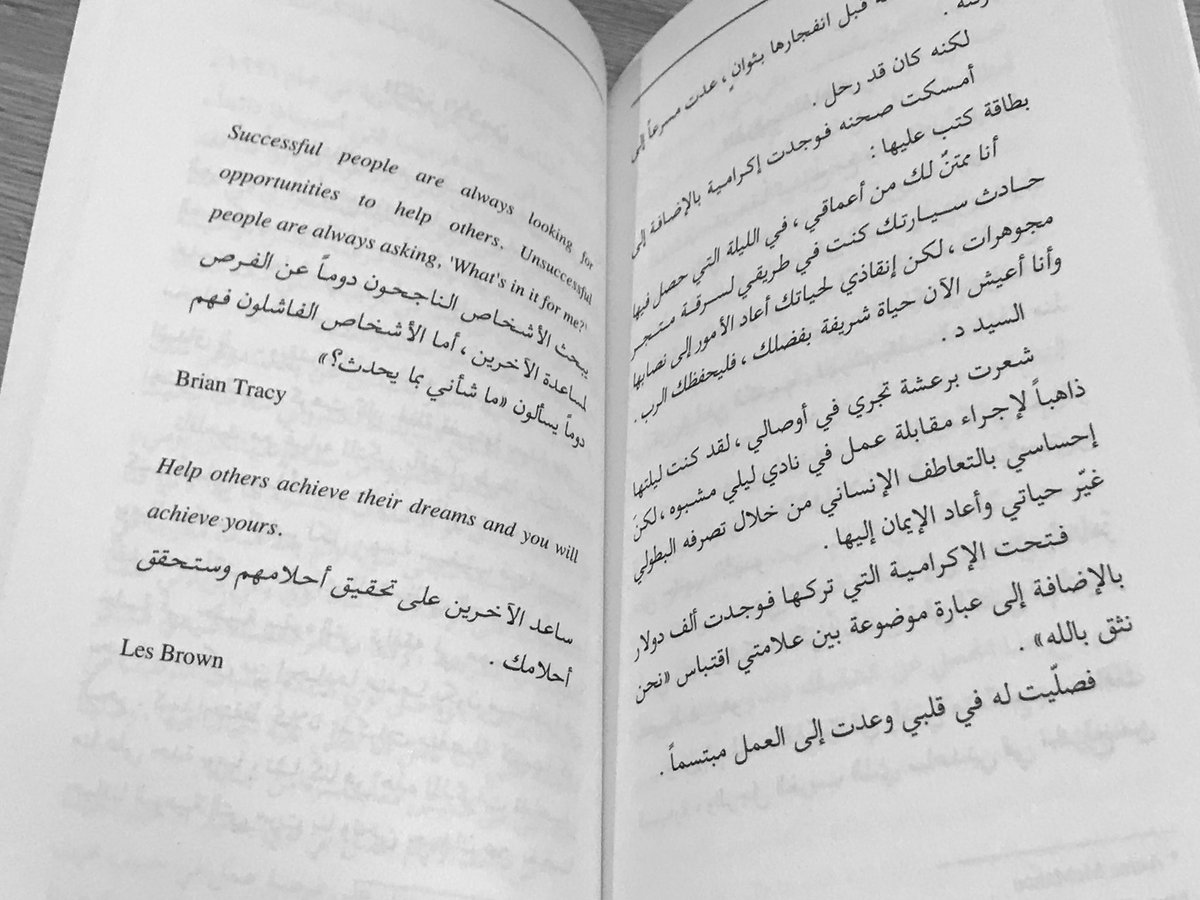 قبل انفجارها بثوانٍ ، عدت مسرعاً إلى
لكنه كان قد رحل .
أمسكت صحنه فوجدت إكرامية بالإضافة إلى
بطاقة كتب عليها :
أنا ممتنٌ لك من أعماقي ، في الليلة التي حصل فيها
حادث سيارتك كنت في طريقي لسرقة متجر
مجوهرات ، لكن إنقاذي لحياتك أعاد الأمور إلى نصابها
وأنا أعيش الآن حياة شريفة بفضلك ، فليحفظك الرب .
السيد د .
شعرت برعشة تجري في أوصالي ، لقد كنت ليلتها
ذاهباً لإجراء مقابلة عمل في نادي ليلي مشبوه ، لكنَ
إحساسي بالتعاطف الإنساني من خلال تصرفه البطولي
غيّر حياتي وأعاد الإيمان إليها .
فتحت الإكرامية التي تركها فوجدت ألف دولار
بالإضافة إلى عبارة موضوعة بين علامتي اقتباس «نحن
نثق بالله» .
فصلّيت له في قلبي وعدت إلى العمل مبتسماً .
Successful people are always looking for
opportunities to help others. Unsuccessful
people are always asking, 'What's in it for me?'
يبحث الأشخاص الناجحون دوماً عن الفرص
لمساعدة الآخرين ، أما الأشخاص الفاشلون فهم
دوماً يسألون «ما شأني بما يحدث؟»
Brian Tracy
Help others achieve their dreams and you will
achieve yours.
ساعد الآخرين على تحقيق أحلامهم وستحقق
أحلامك .
Les Brown